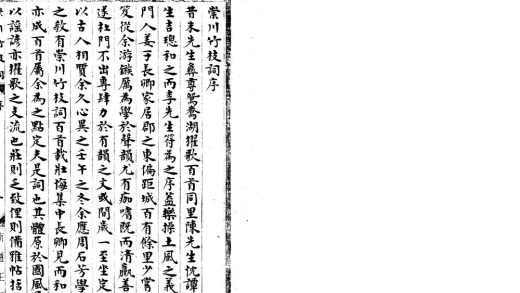 崇川竹枝詞序
昔朱先生彝尊鴛鴦湖櫂歌百首同里陳先生忱譚
生吉璁和之而李先生符為之序蓋樂操土風之義
門人姜子長卿家居郡之東偏距城百有餘里少嘗
笈從余游鏃厲為學於聲韻尤有痂嗜既而清羸善
遂杜門不出專肆力於有韻之文或間歲一至坐定
以古人相質余久心異之壬午之冬余應周石芳學
之敎有崇川竹枝詞百首載壯悔集中長卿見而和
亦成百首屬余為之點定夫是詞也其體原於國風
以謠諺亦櫂歌之支流也莊則之致俚則備雅帖括